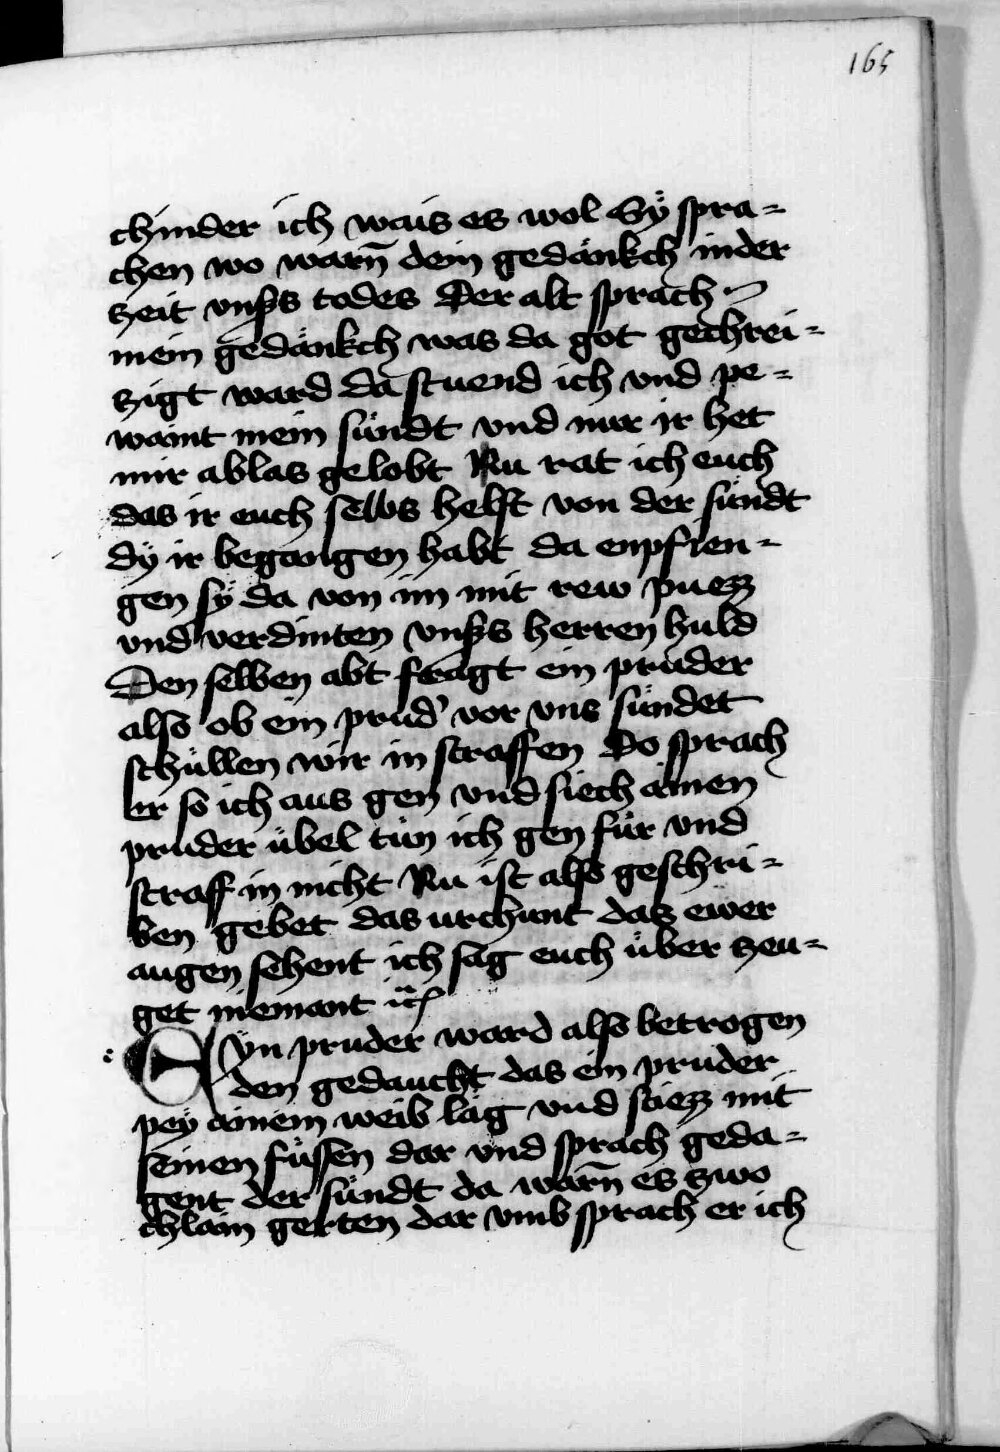 165
chinder ich wais es wol Sÿ spra=
chen wo warn̄ dein gedänkch inder
zeit vnsers todes Der alt sprach
mein gedänkch was da got gechrei=
zigt ward da stuend ich vnd pe=
waint mein sündt vnd nur ir het
mir ablas gelobt Nu rat ich euch
das ir euch selbs helft von der sündt
dÿ ir begangen habt da enpfien=
gen sÿ da von im mit rew puezz
vnd verdinten vnsers herren huld
Den selben abt fragt ein pruder
also ob ein prud' vor vns sündet
schüllen wir in straffen Do sprach
er so ich aus gen vnd siech ainen
pruder übel tün ich gen für vnd
straff in nicht Nu ist also geschri=
ben gebet das urchunt das ewer
augen sehent ich sag euch über zeu=
get niemant
Eÿn pruder ward also betrogen
den gedaucht das ein pruder
peÿ ainem weib läg vnd stiezz mit
seinen füssen dar vnd sprach geda=
gent der sündt da warn̄ es zwo
chlain gerten dar vmb sprach er ich